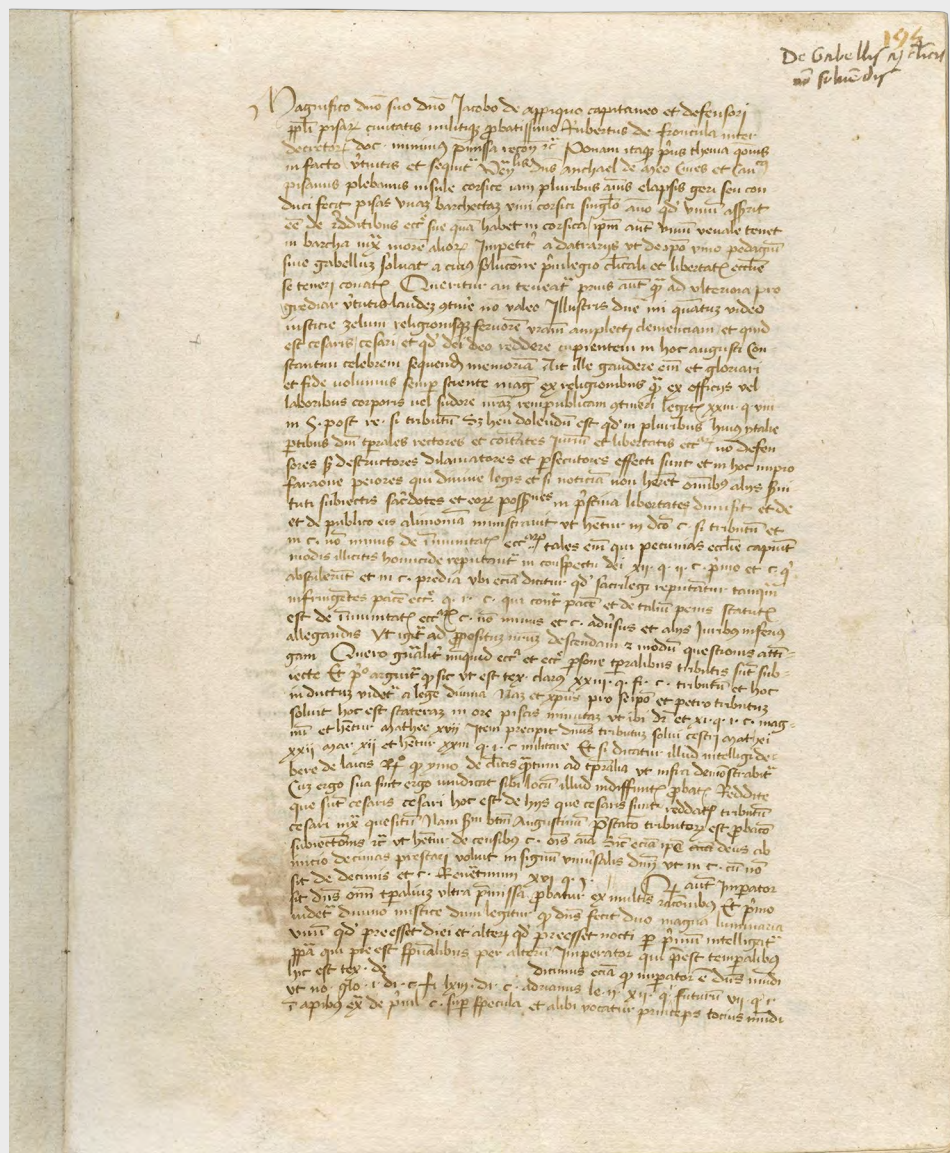 194
De Gabellis a clericis
non solvendis
Magnifico dno suo dno Jacobo de appiano capitaneo et defensori
ppli pisan civitatis militiq probatissimo Rubertus de fronciula inter
decretor doc minimus pmissa regon &c Ponam itaq pus thema quonis
in facto vtutis et sequit dns Michael de Meo cives et Can
pisanus plebanus insule corsice iam pluribus annis elapsis geri seu con
duci fecit pisas unaz barchectaz vini corsici singlo ano qd vinum assrit
ee de redditibus ecce sue qua habet in corsica ipm aut vinum venale tenet
in barcha iux more alior Impetit a datiariis ut de ipo vino pedagium
sive gabellaz solvat a cuius solucione privilegio clericali et libertate ecclie
se teneri Queritur an teneat prius aut q ad ulteriora pro
grediar vtutis laudez no valeo Illustris dne mi quatuz video
iusticie zelum religionisq fervore vram amplecti clemenciam et quid
est cesaris cesari et qd dei deo reddere cupientem in hoc augusti Con
stantini celebrem sequendo memoria Ait ille gaudere eni et gloriari
et fide volumus semp sciente mag ex religionibus q ex officiis vel
laboribus corporis vel sudore nraz rempublicam contineri legit xxiii q viii
in § post re si tributu Sz heu dolendu est qd in pluribus huius ytalie
ptibus dni tprales rectores et coitates iuriu et libertatis ecce no defen
sores sz destructores dilaniatores et psecutores effecti sunt et in hoc impro
faraone peiores qui divine legis et si noticia non heret omibus aliis
tuti subiectis sacdotes et eor possones in pstina libertates dimisit et de
et de publico eis alimonia ministravit ut hetur in dco c. si tributu et
in c. no minus de imunitate ecc tales eni qui pecunias ecclie capiut
modis illicitis homicide reputant in conspectu dei xii q ii c. pmo et c. q
abstulerut et in c. predia ubi ecia dicitur qd sacrilegi reputatur tanq
infringetes pace ecc q. i. c. qui cont pace et de taliu penis statut
est de imunitate ecc c. no minus et c. adversus et aliis iuribus inferius
allegandis Ut igit ad ppositum nruz descendam et modu questionis atti
gam Quero gnalit nunquid ecce et ecc psone tpralibus tributis sut sub
iecte Et po arguit q sic ut est tex clarus xxiii q. fi. c. tributu et hoc
inductuz videt a lege divina Naz et xpus pro seipo et petro tributuz
solvit hoc est stateraz in ore piscis inventaz ut ibi dr et xi q. i. c. mag
nu et hetur Mathee xvii Item precipit dnus tributuz solvi cesari Mat xi
xxii Mar xii et hetur xxiii q. i. c. militare Et si dicatur illud intelligi de
bere de laicis Ro q ymo de clicis qtum ad tpralia ut infra demostrabit
Cuz ergo sua sint ergo vendicat sibi locu illud indiffinite pbat Reddite
que sut cesaris cesari hoc est de hiis que cesaris sunt reddatis tributu
cesari iux quesitu Nam sm btm Augustinu Pstatio tributor est pbatio
subiectionis &c ut hetur de censibus c. ois aia Sic ecia ipe deus ab
inicio decimas prestari voluit in signu universalis dnii ut in c. cu no
sit de decimis et c. Revertimini xvi q. i. Q aut Imperator
sit dns oim tpaliuz ultra pmissa probatur ex multis racionibus Et pimo
videt divino mistice dum legitur q dns fecit duo magna luminaria
unu qd preesset diei et alteri qd preesset nocti per pimu intelligat
papa qui preest spualibus per alteru Imperator qui preest temporalibus
hic est tex. de dicimus ecia q imperator e dns mudi
ut no. glo. i. di. c. fi. lxiii. di. c. adrianus le. ii. xii q. futuru vii q. i.
c. apibus ex de pivil. c. super specula et alibi vocatur princeps tocius mudi